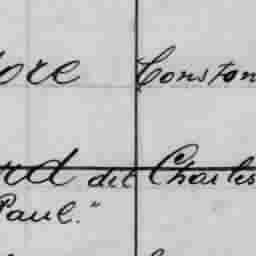 ore Constan
rd dit Charles
Paul."